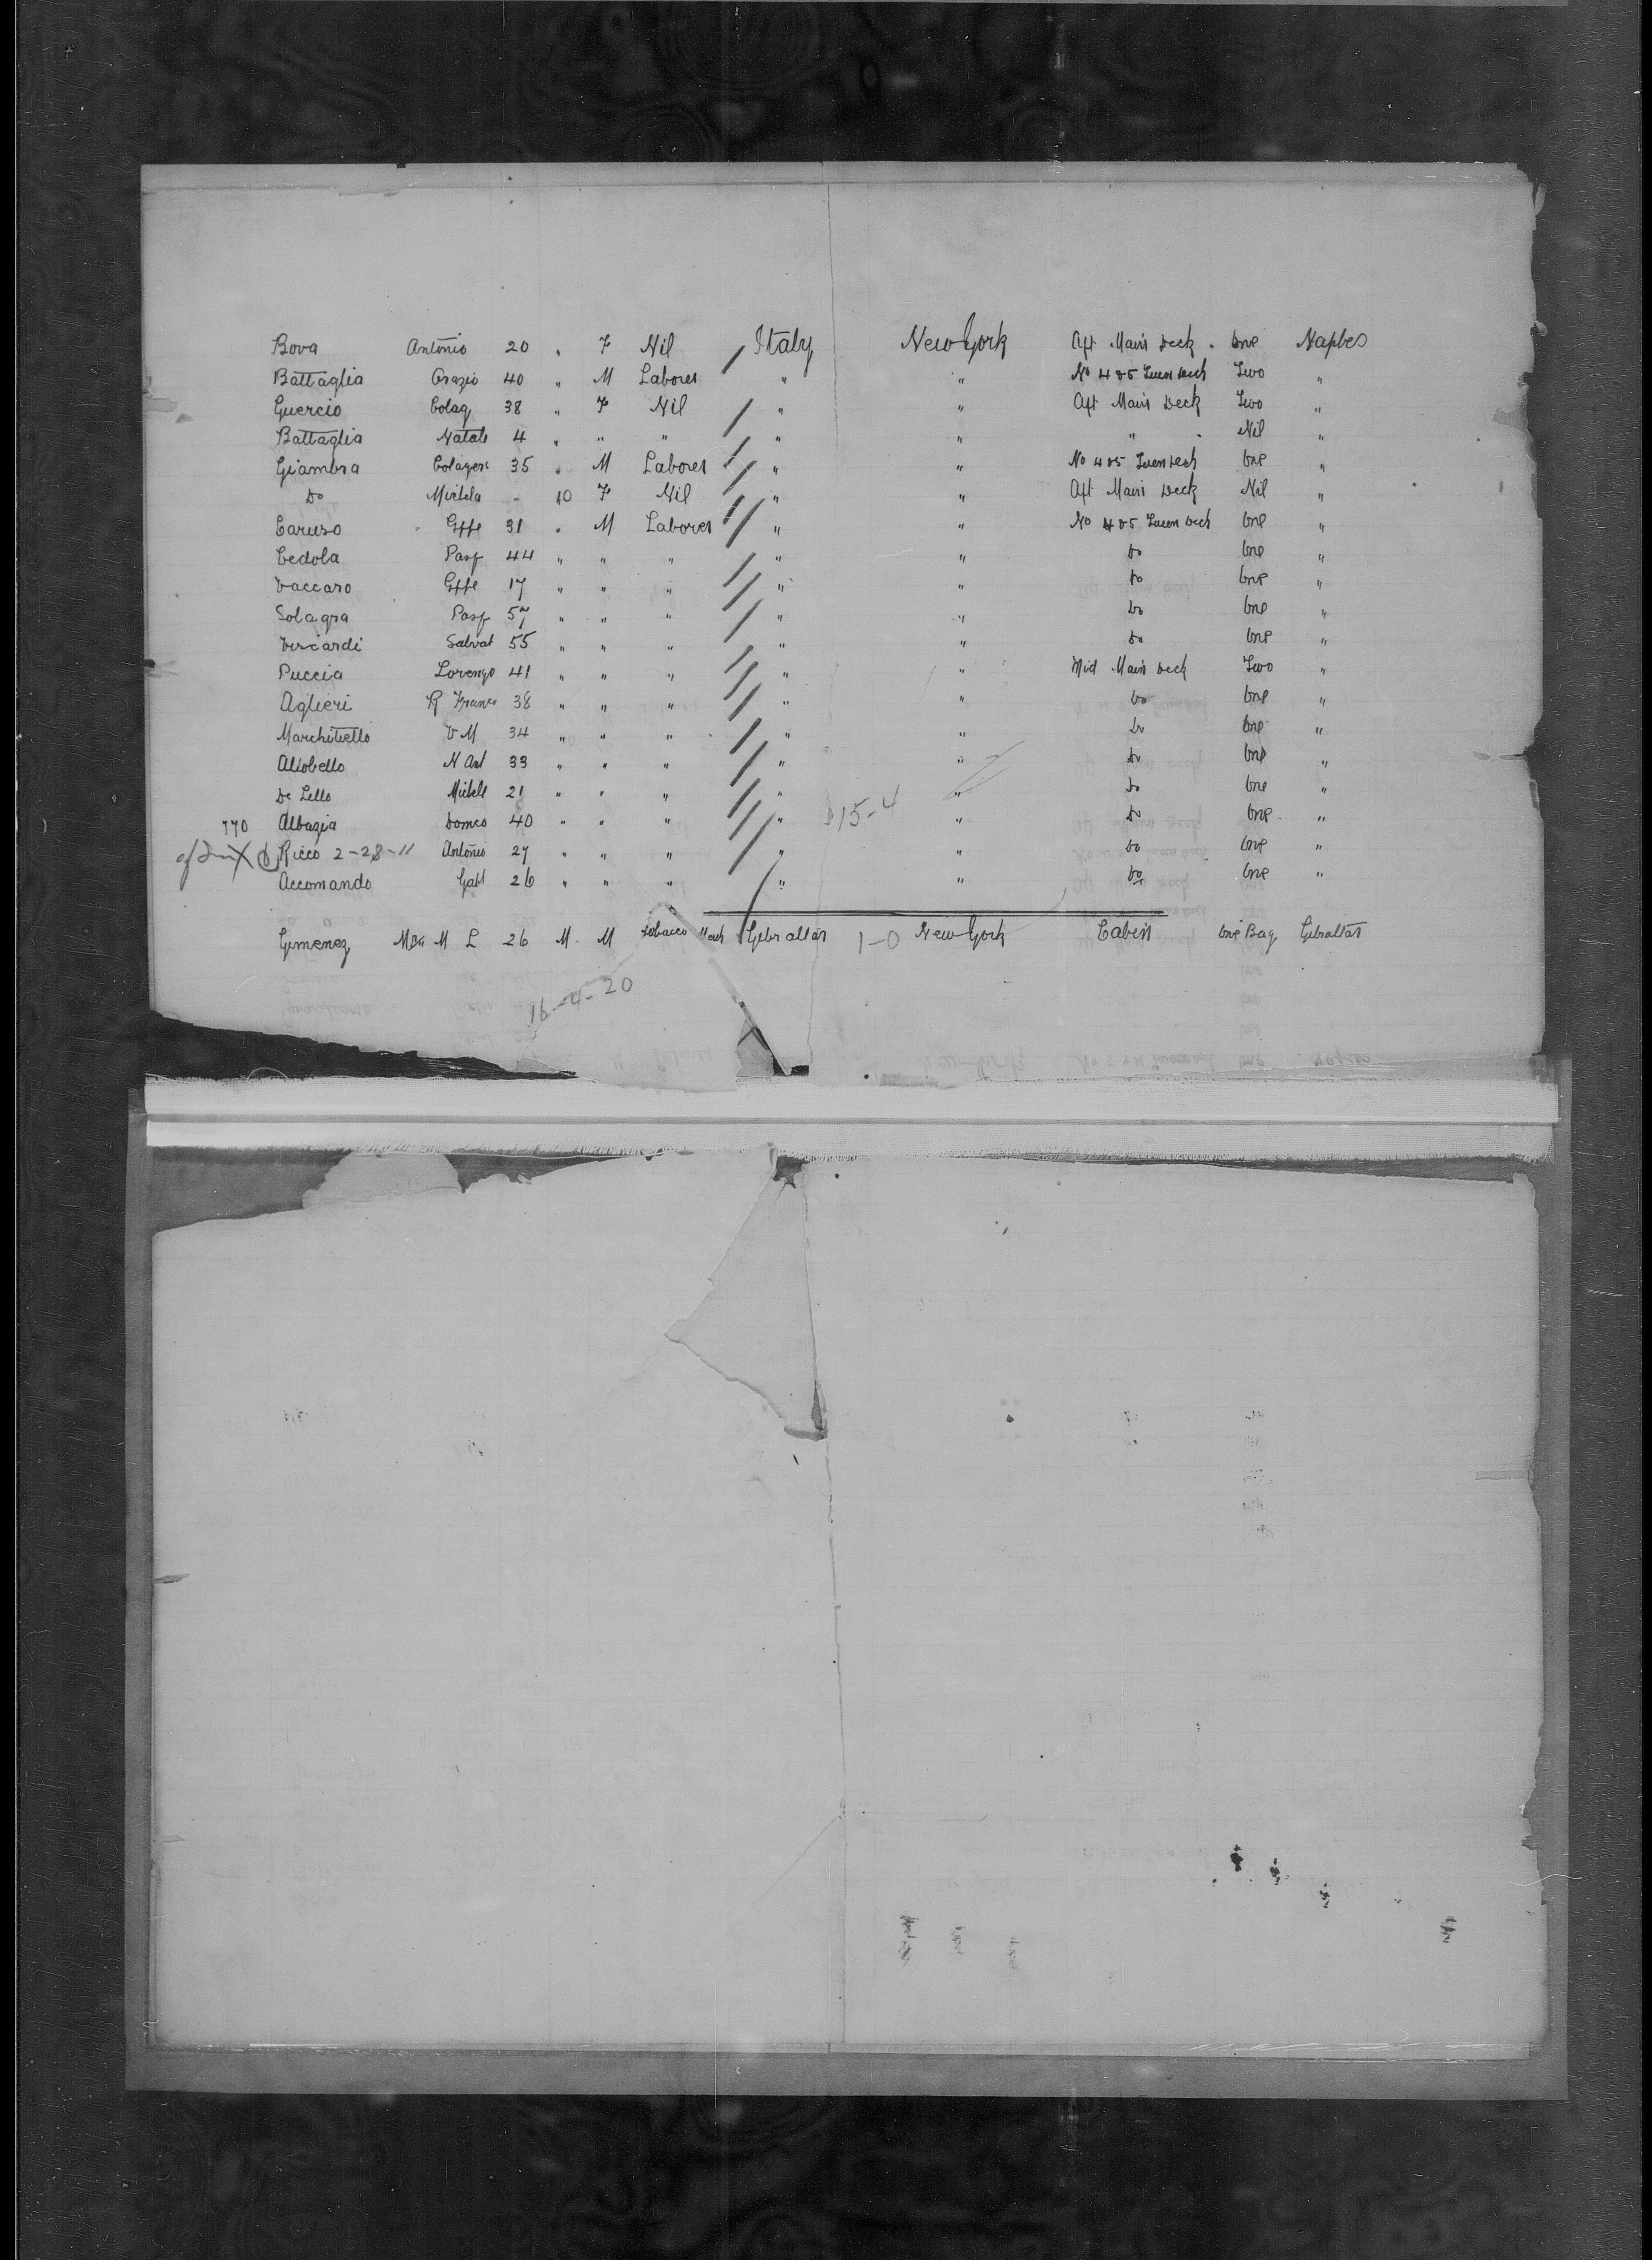 Bova Antonio 20 " F Nil Italy New York Aft Main Deck . One Naples
Battaglia Orazio 40 " M Laborer " " No 4 & 5 Tween Deck Two "
Guercio Colag 38 " F Nil " " Aft Main Deck Two "
Battaglia Natale 4 " " " " " " Nil "
Giambra Calogero 35 " M Laborer " " No 4 & 5 Tween Deck One "
Do Michela - 10 F Nil " " Aft Main Deck Nil "
Caruso Gffe 31 " M Laborer " " No 4 & 5 Tween Deck One "
Cedola Pasq 44 " " " " " Do One "
Vaccaro Gffe 17 " " " " " Do One "
Solagra Pasq 57 " " " " " Do One "
Viscardi Salvat 55 " " " " " Do One "
Puccia Lorenzo 41 " " " " " Mid Main Deck Two "
Aglieri R Franco 38 " " " " " Do One "
Marchitiello V M 34 " " " " " Do One "
Altobello N Ant 33 " " " " " Do One "
De Lello Michele 21 " " " " " Do One "
770 Albazia Domco 40 " " " " 15-4 " Do One "
X Ricco 2-28-11 Antonio 27 " " " " " Do One "
Accomando Gabl 26 " " " " " Do One "
Gimenez M L 26 M. M Tobacco Merch Gibraltar 1-0 New York Cabin One Bag Gibraltar
16-4-20